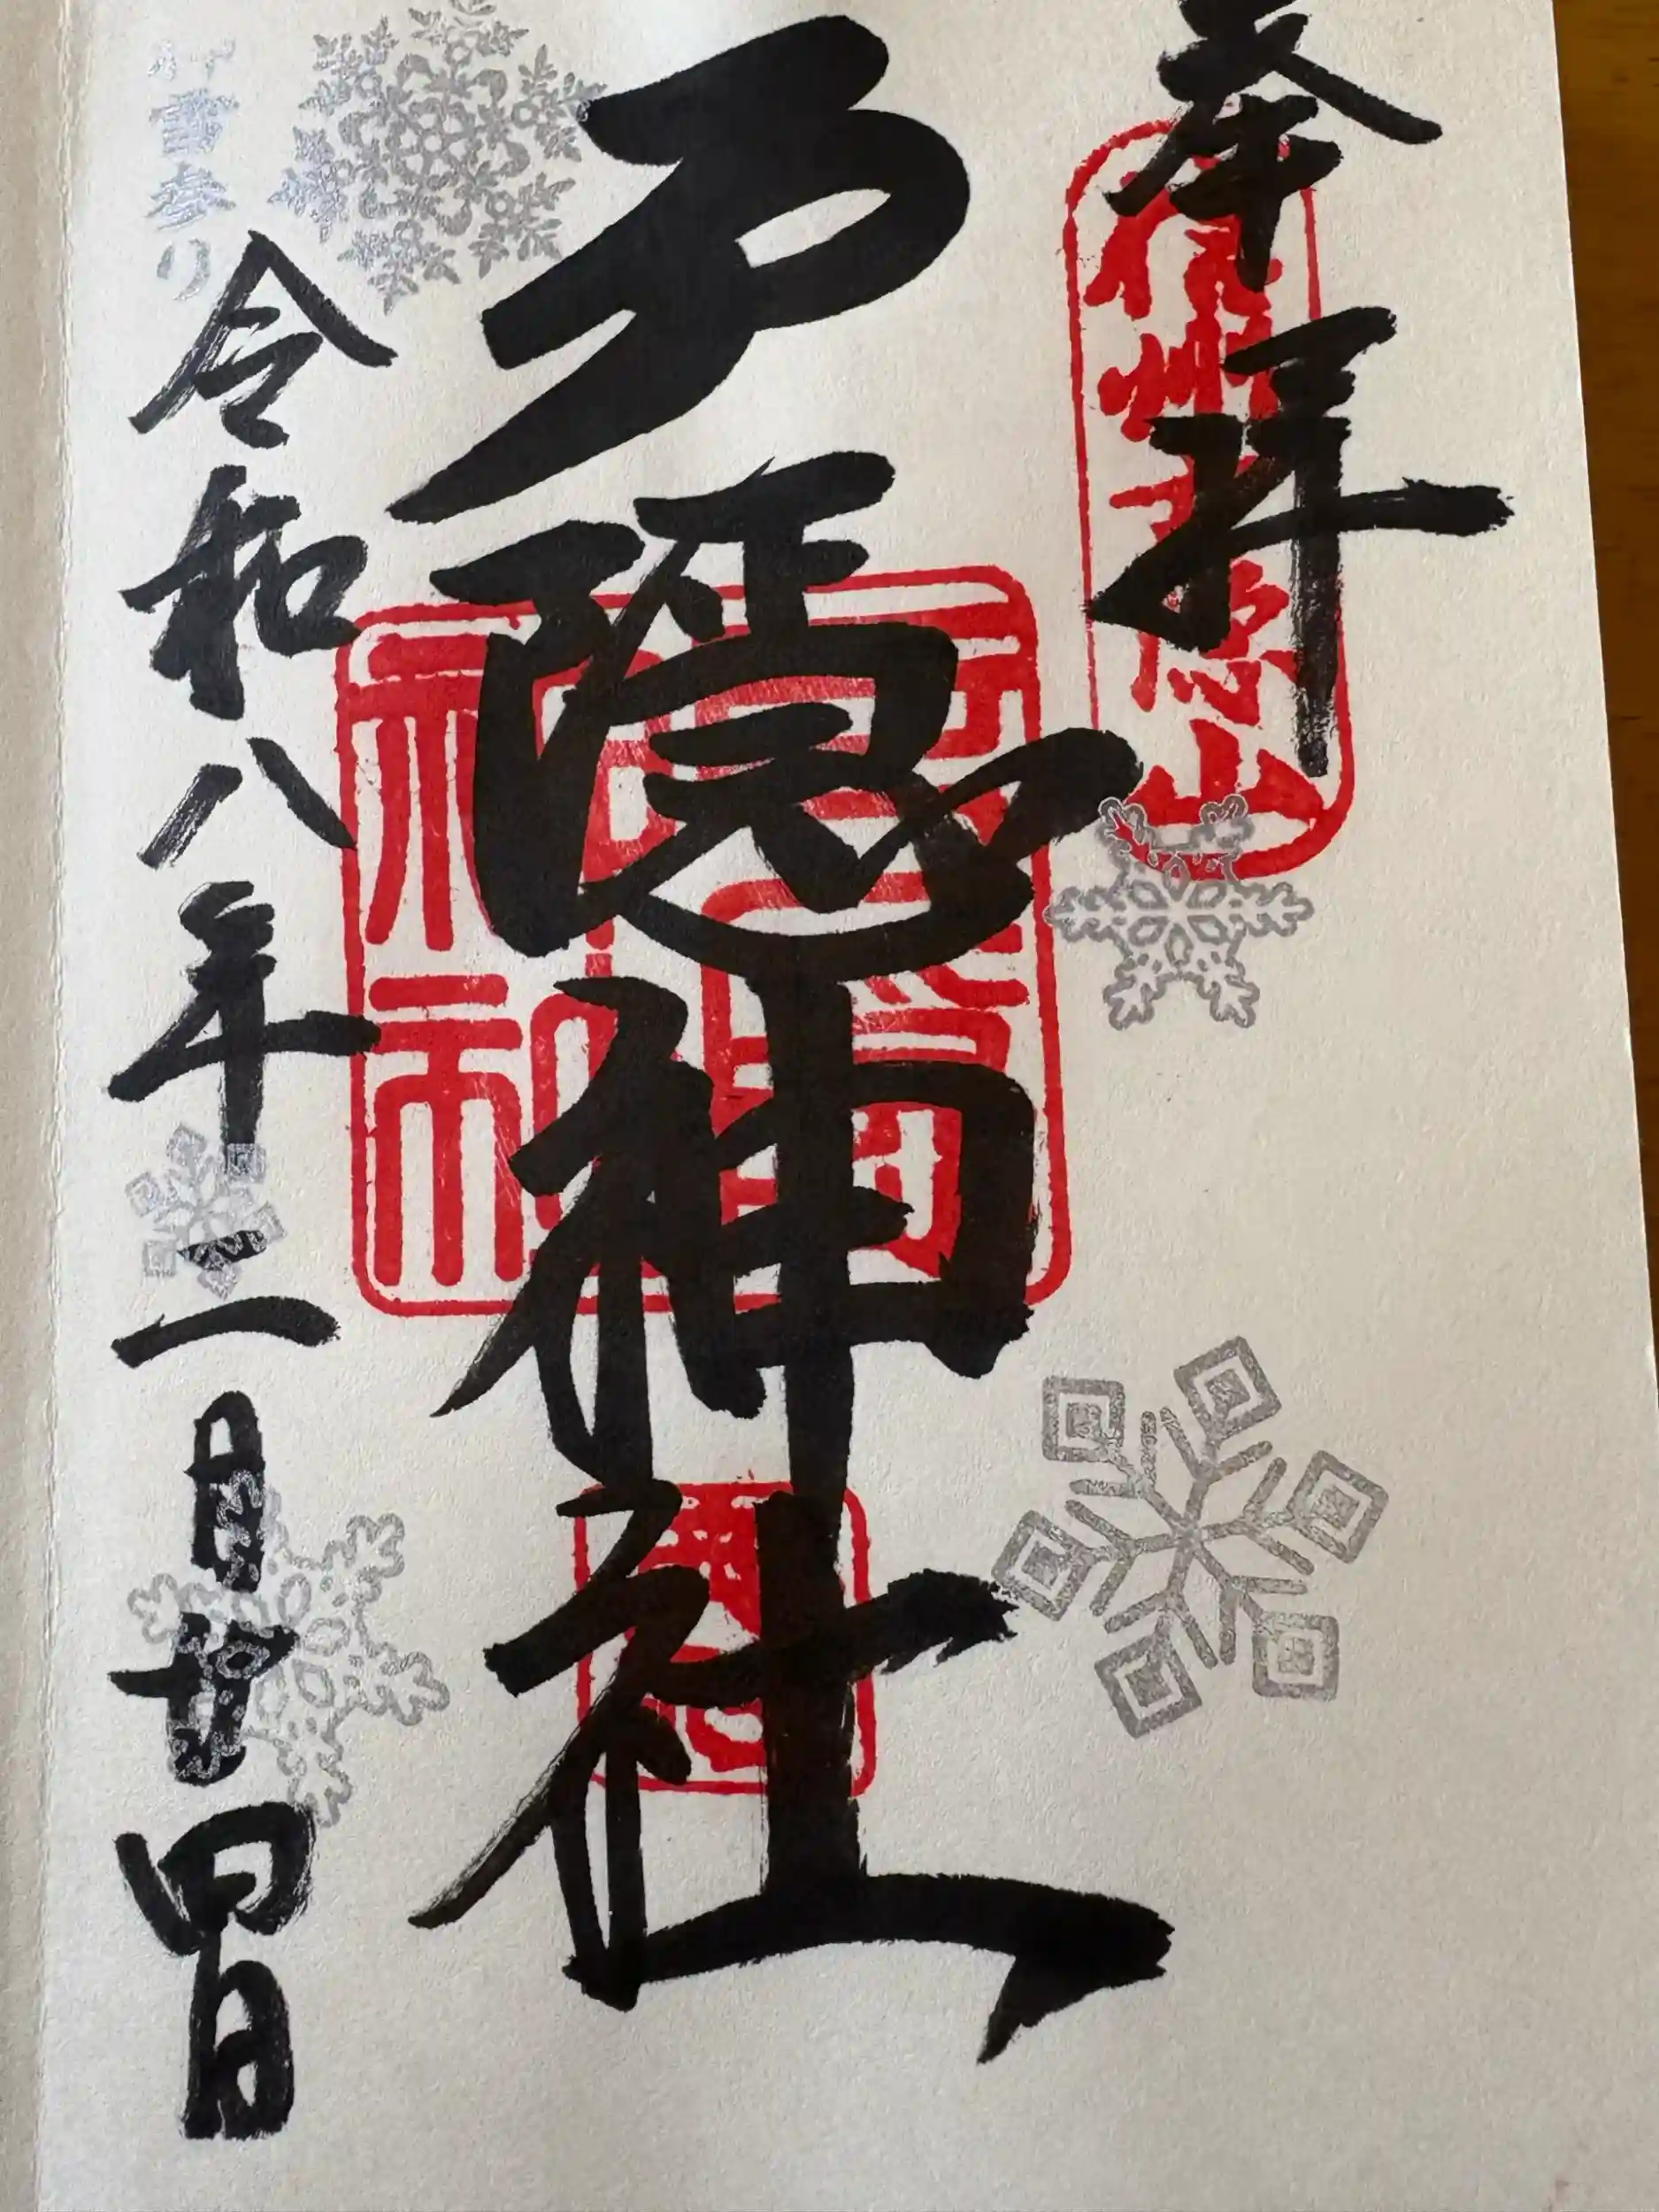 奉拝
信州戸隠山
戸隠神社
戸隠神社
令和八年二月廿四日
雪参り